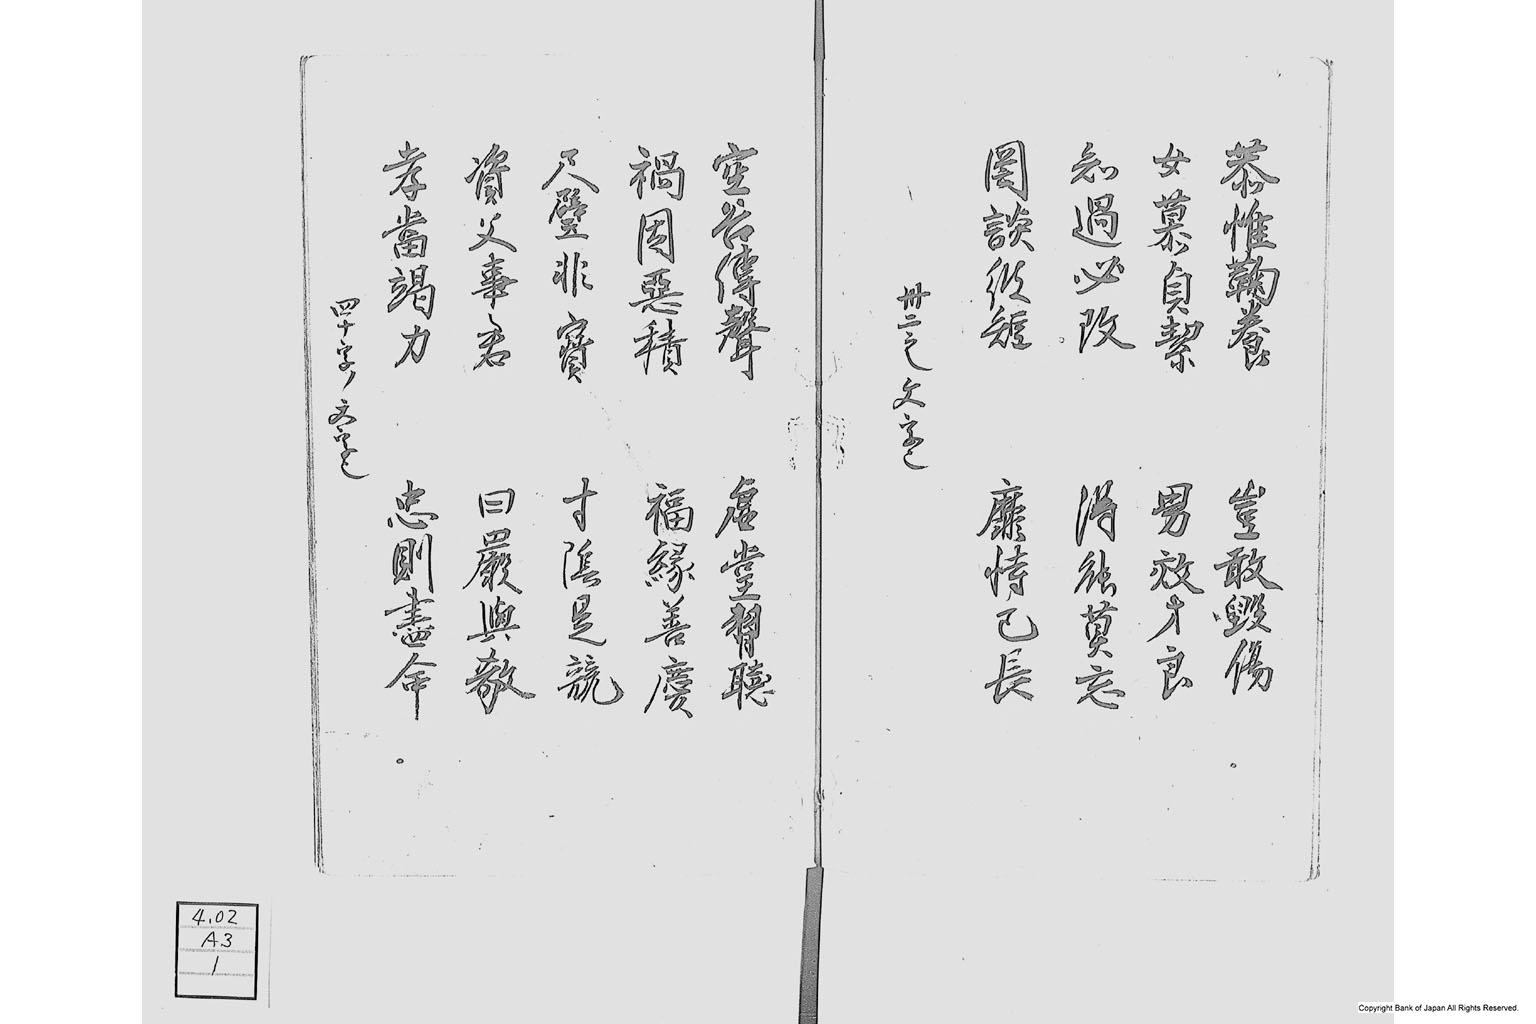 恭惟鞠養 豈敢毀傷
女慕貞絜 男效才良
知過必改 得能莫忘
罔談彼短 靡恃己長
卅二之文字也
空谷傳聲 虛堂習聽
禍因惡積 福緣善慶
尺璧非寶 寸陰是競
資父事君 曰嚴與敬
孝當竭力 忠則盡命
四十字ノ文字也
4.02
A3
1
Copyright Bank of Japan All Rights Reserved.